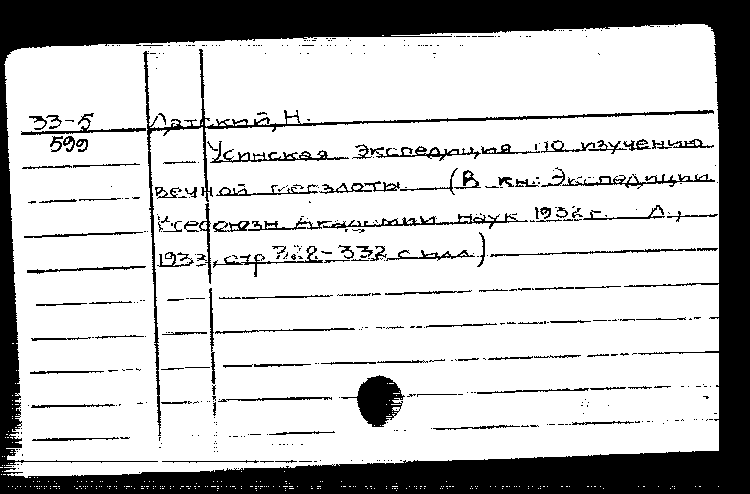 33-5 Датский, Н.
599 Усинская экспедиция по изучению
вечной мерзлоты (В кн: Экспедиции
Всесоюзн. Академии наук 1932 г. Л.,
1933, стр. 328-332 с илл.)